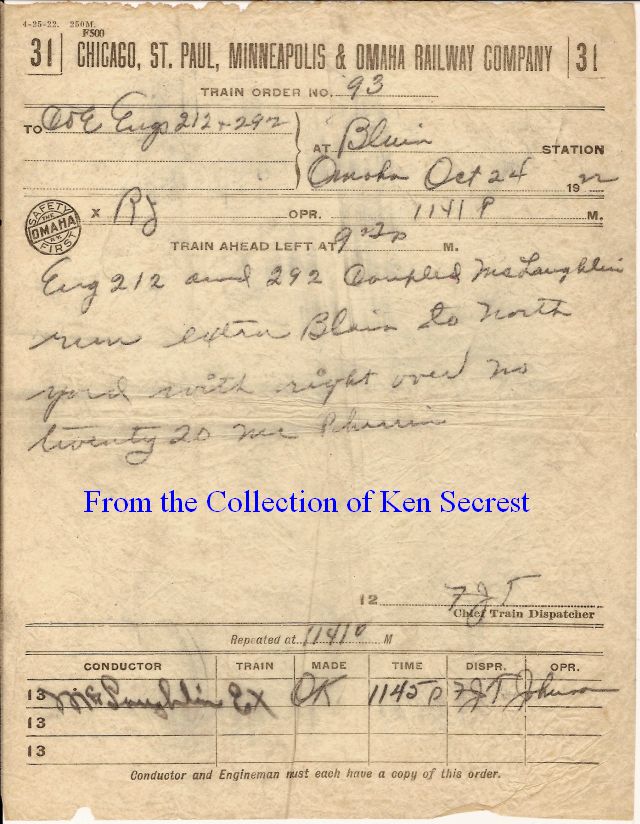 4-25-22. 250M.
F500
31 CHICAGO, ST. PAUL, MINNEAPOLIS & OMAHA RAILWAY COMPANY 31
TRAIN ORDER NO. 93
TO C&E Engs 212 + 292
AT Blair STATION
Omaha Oct 24 1922
SAFETY FIRST THE OMAHA RY.
X RJ OPR. 1141 P M.
TRAIN AHEAD LEFT AT M.
Eng 212 and 292 Coupled McLaughlin
run extra Blair to North
yard with right over no
twenty 20 Mc
From the Collection of Ken Secrest
12 FJT
Chief Train Dispatcher
Repeated at 1141 P M
CONDUCTOR TRAIN MADE TIME DISPR. OPR.
13 McLaughlin Ex OK 1145 P FJT Johnson
13
13
Conductor and Engineman must each have a copy of this order.